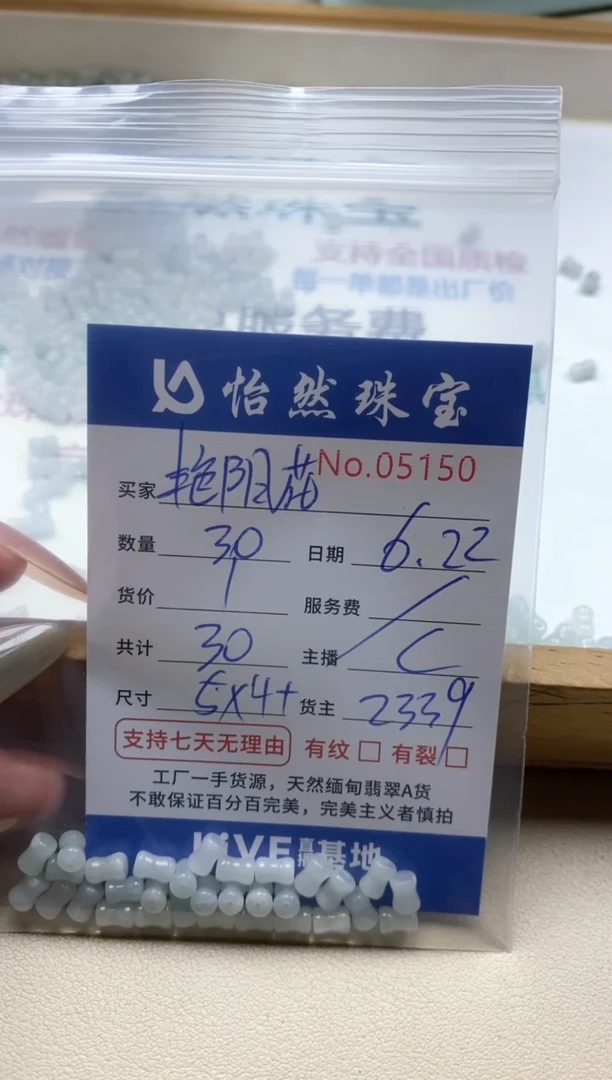 支持全国质检
每一单都是出厂价
服务费
怡然珠宝
No.05150
买家 艳阳花
数量 30 日期 6.22
货价 1 服务费 /
共计 30 主播 C
尺寸 5X4+ 货主 2339
支持七天无理由 有纹 □ 有裂 □
工厂一手货源，天然缅甸翡翠A货
不敢保证百分百完美，完美主义者慎拍
LiVE 直播 基地